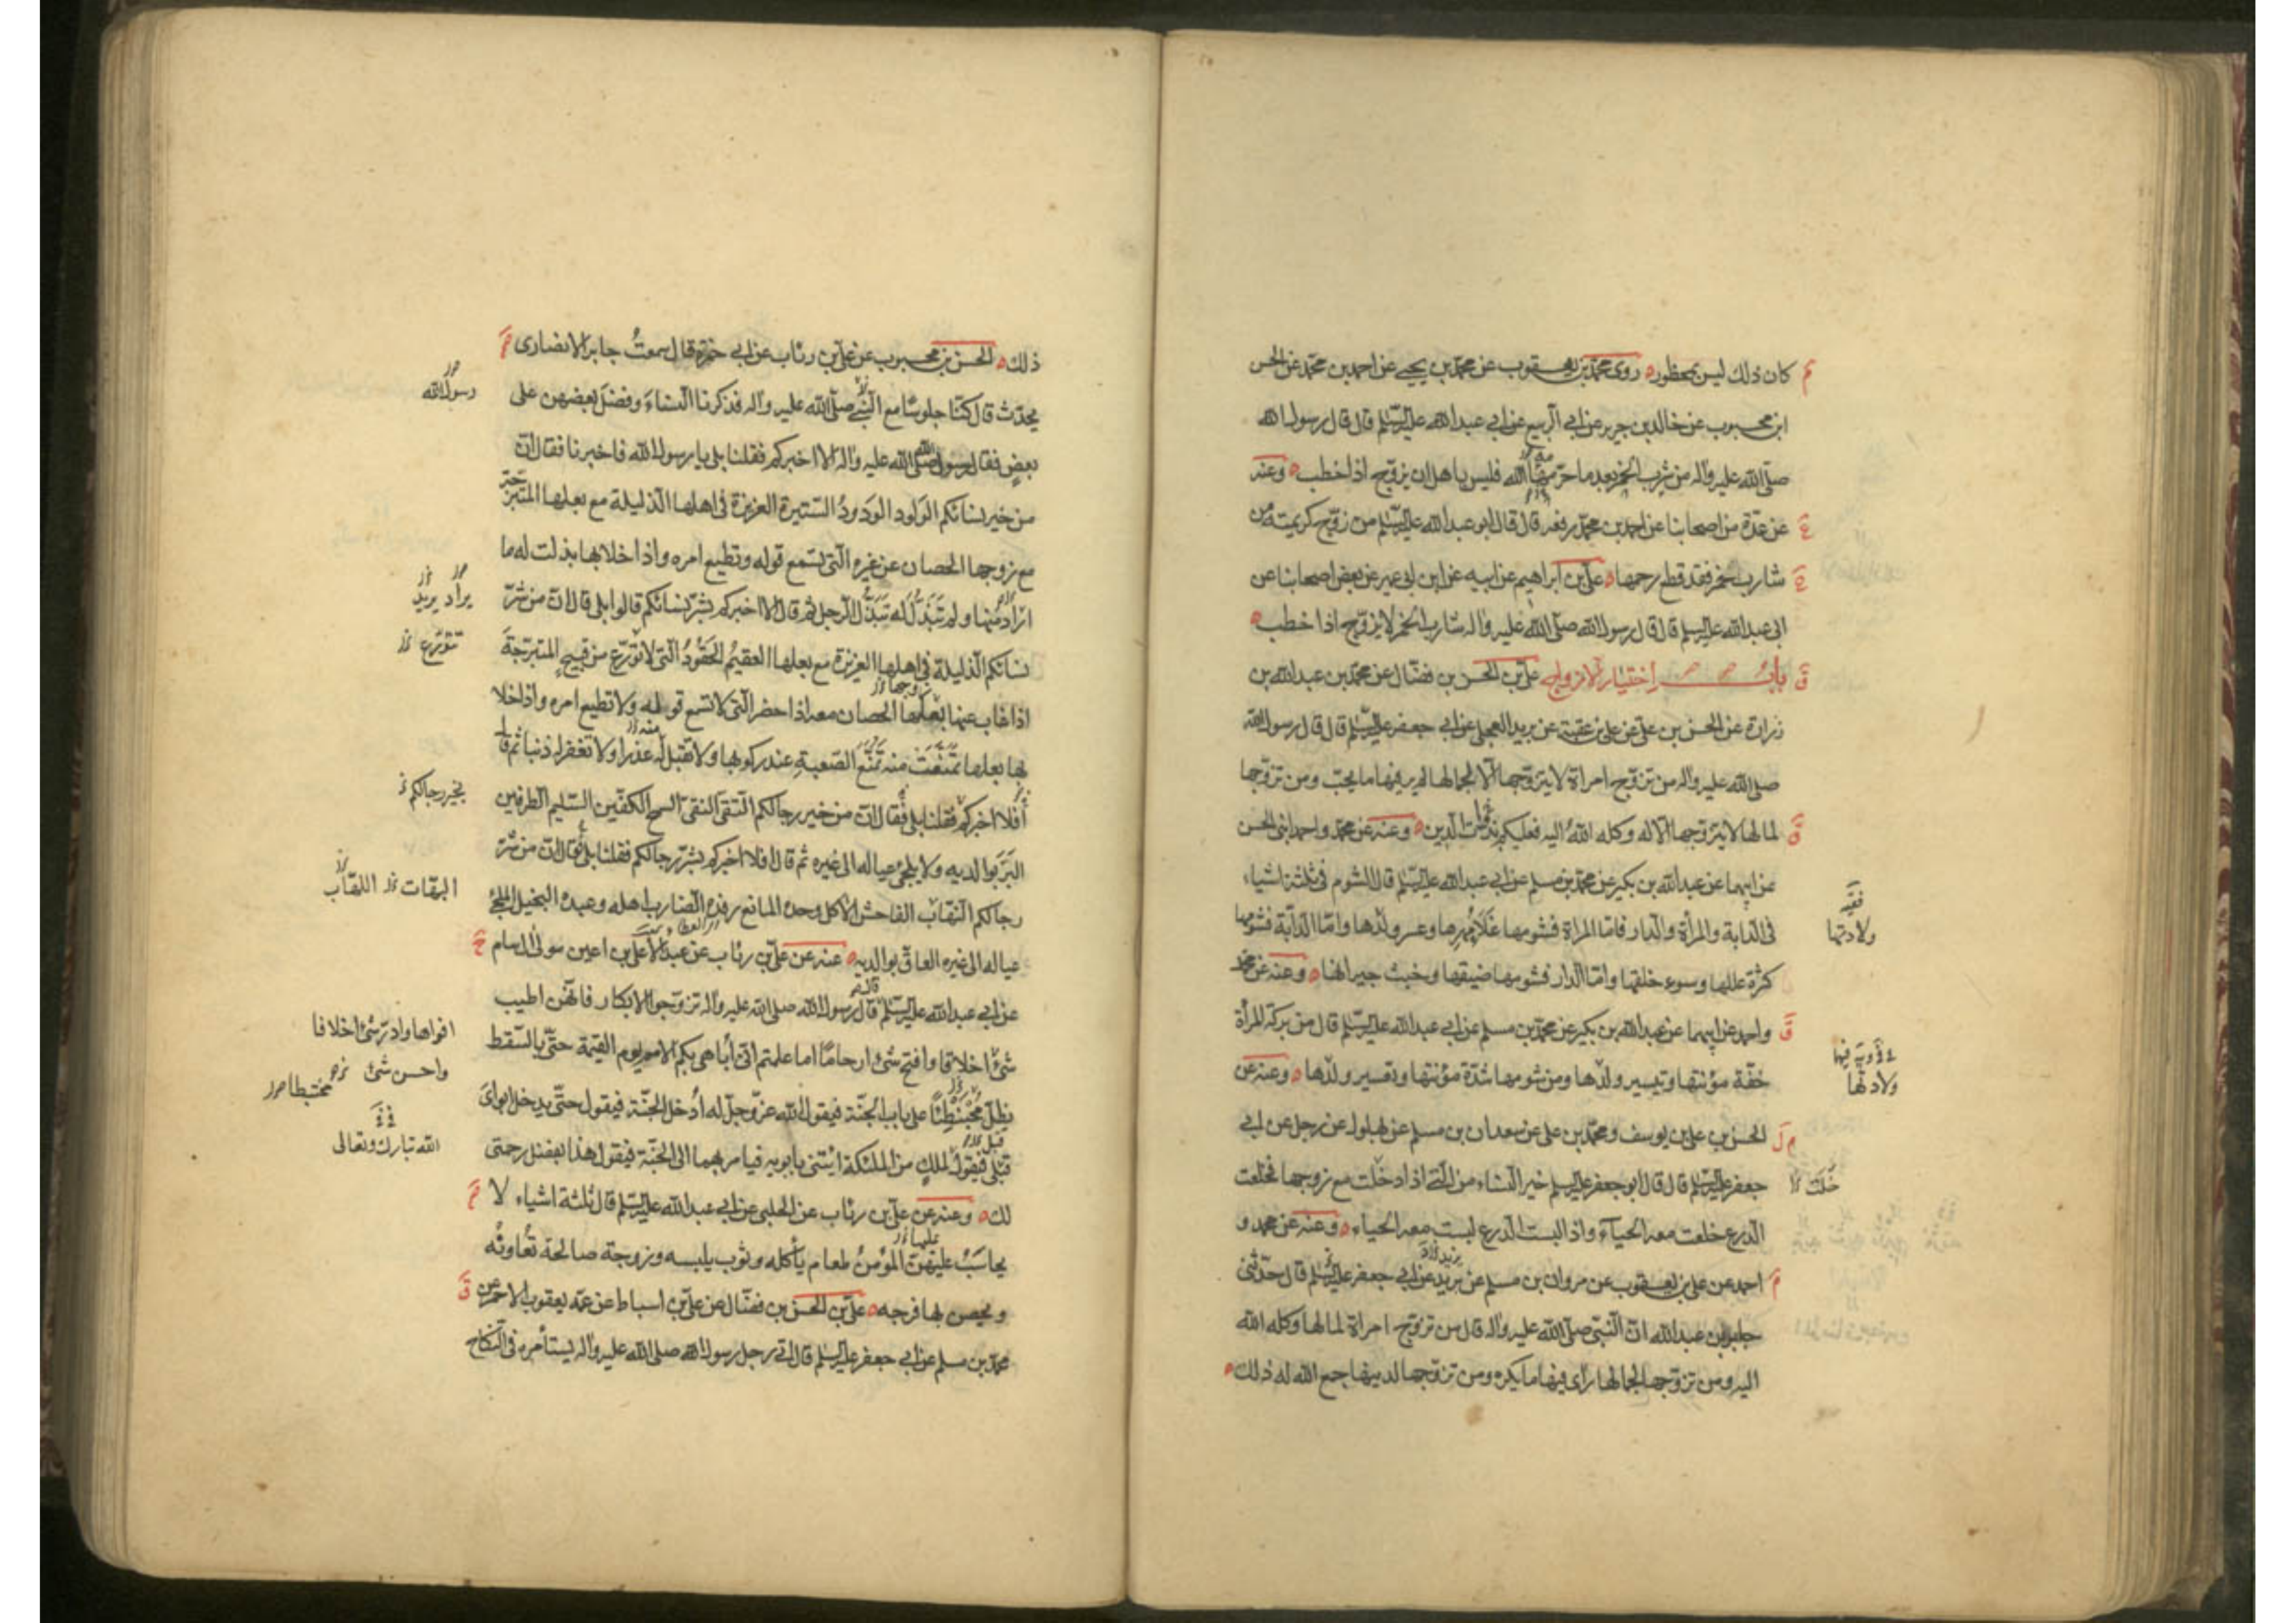 كان ذلك ليس بمحظور روى محمد بن يعقوب عن محمد بن يحيى عن احمد بن محمد عن الحسن
ابن محبوب عن خالد بن جرير عن ابي الربيع عن ابي عبد الله عليه السلم قال قال رسول الله
صلى الله عليه واله من شرب الخمر بعد ما حرمها الله فليس باهل ان يزوج اذا خطب وعنه
عن عدة من اصحابنا عن احمد بن محمد رفعه قال قال ابو عبد الله عليه السلم من زوج كريمته من
شارب خمر فقد قطع رحمها علي بن ابراهيم عن ابيه عن ابن ابي عمير عن بعض اصحابنا عن
ابى عبد الله عليه السلم قال قال رسول الله صلى الله عليه واله شارب الخمر لا يزوج اذا خطب
باب اختيار الازواج علي بن الحسن بن فضال عن محمد بن عبد الله بن
زرارة عن الحسن بن علي عن علي بن عقبة عن بريد العجلي عن ابي جعفر عليه السلم قال قال رسول الله
صلى الله عليه واله من تزوج امراة لا يتزوجها الا لجمالها لم ير فيها ما يحب ومن تزوجها
لمالها لا يتزوجها الا له وكله الله اليه فعليكم بذات الدين وعنه عن محمد واحمد ابنى الحسن
عن ابيهما عن عبد الله بن بكير عن محمد بن مسلم عن ابي عبد الله عليه السلم قال الشوم في ثلثة اشياء
فى الدابة والمرأة والدار فاما المراة فشومها غلاء مهرها وعسر ولدها واما الدابة فشومها
كثرة عللها وسوء خلقها واما الدار فشومها ضيقها وخبث جيرانها وعنه عن محمد
واحمد عن ابيهما عن عبد الله بن بكير عن محمد بن مسلم عن ابي عبد الله عليه السلم قال من بركة المرأة
خفة مؤنتها وتيسير ولدها ومن شومها شدة مؤنتها وتعسير ولدها وعنه عن
الحسن بن علي بن يوسف ومحمد بن علي عن سعدان بن مسلم عن بهلول عن رجل عن ابي
جعفر عليه السلم قال قال ابو جعفر عليه السلم خير النساء من التي اذا دخلت مع زوجها فخلعت
الدرع خلعت معه الحياء واذا لبست الدرع لبست معه الحياء وعنه عن محمد و
احمد عن علي بن يعقوب عن مروان بن مسلم عن بريد عن ابي جعفر عليه السلم قال حدثنى
جابر بن عبد الله ان النبي صلى الله عليه واله قال من تزوج امراة لمالها وكله الله
اليه ومن تزوجها لجمالها راى فيها ما يكره ومن تزوجها لدينها جمع الله له ذلك
ولادتها
ولادتها
ذلك الحسن بن محبوب عن علي بن رئاب عن ابي حمزة قال سمعت جابر الانصارى
يحدث قال كنا جلوسا مع النبي صلى الله عليه واله فذكرنا النساء وفضل بعضهن على
بعض فقال رسول الله صلى الله عليه واله الا اخبركم فقلنا بلى يا رسول الله فاخبرنا فقال ان
من خير نسائكم الولود الودود الستيرة العزيزة في اهلها الذليلة مع بعلها المتبرجة
مع زوجها الحصان عن غيره التي تسمع قوله وتطيع امره واذا خلا بها بذلت له ما
اراد منها ولم تبذل له تبذل الرجل ثم قال الا اخبركم بشر نسائكم قالوا بلى قال ان من شر
نسائكم الذليلة في اهلها العزيزة مع بعلها العقيم الحقود التي لا تتورع من قبيح المتبرجة
اذا غاب عنها بعلها الحصان معه اذا حضر التي لا تسمع قوله ولا تطيع امره واذا خلا
بها بعلها تمنعت منه تمنع الصعبة عند ركوبها ولا تقبل له عذرا ولا تغفر له ذنبا ثم قال
أفلا اخبركم فقلنا بلى فقال ان من خير رجالكم التقى النقى السمح الكفين السليم الطرفين
البر بوالديه ولا يلجئ عياله الى غيره ثم قال افلا اخبركم بشر رجالكم فقلنا بلى فقال ان من شر
رجالكم النقاب الفاحش الاكل وحده المانع رفده الضارب اهله وعبده البخيل الملجئ
عياله الى غيره العاق بوالديه عنه عن علي بن رئاب عن عبد الاعلى بن اعين مولى ال سام
عن ابي عبد الله عليه السلم قال رسول الله صلى الله عليه واله تزوجوا الابكار فانهن اطيب
شئ اخلاقا وافتح شئ ارحاما اما علمتم انى أباهى بكم الامم يوم القيمة حتى بالسقط
يظل محبنطئا على باب الجنة فيقول الله عز وجل له ادخل الجنة فيقول حتى يدخل ابواى
قبلى فيقول لملك من الملئكة ائتنى بابويه فيامر بهما الى الجنة فيقول هذا بفضل رحمتى
لك وعنه عن علي بن رئاب عن الحلبي عن ابي عبد الله عليه السلم قال ثلثة اشياء لا
يحاسب عليهن المؤمن طعام يأكله وثوب يلبسه وزوجة صالحة تعاونه
ويحصن بها فرجه علي بن الحسن بن فضال عن علي بن اسباط عن عمه يعقوب الاحمر عن
محمد بن مسلم عن ابي جعفر عليه السلم قال اتى رجل رسول الله صلى الله عليه واله يستأمره في النكاح
رسول الله
يراد يريد
تتورع
بخير رجالكم
البهات اللقاب
افواها وادر شئ اخلافا
واحسن شئ
محتبطا
الله تبارك وتعالى